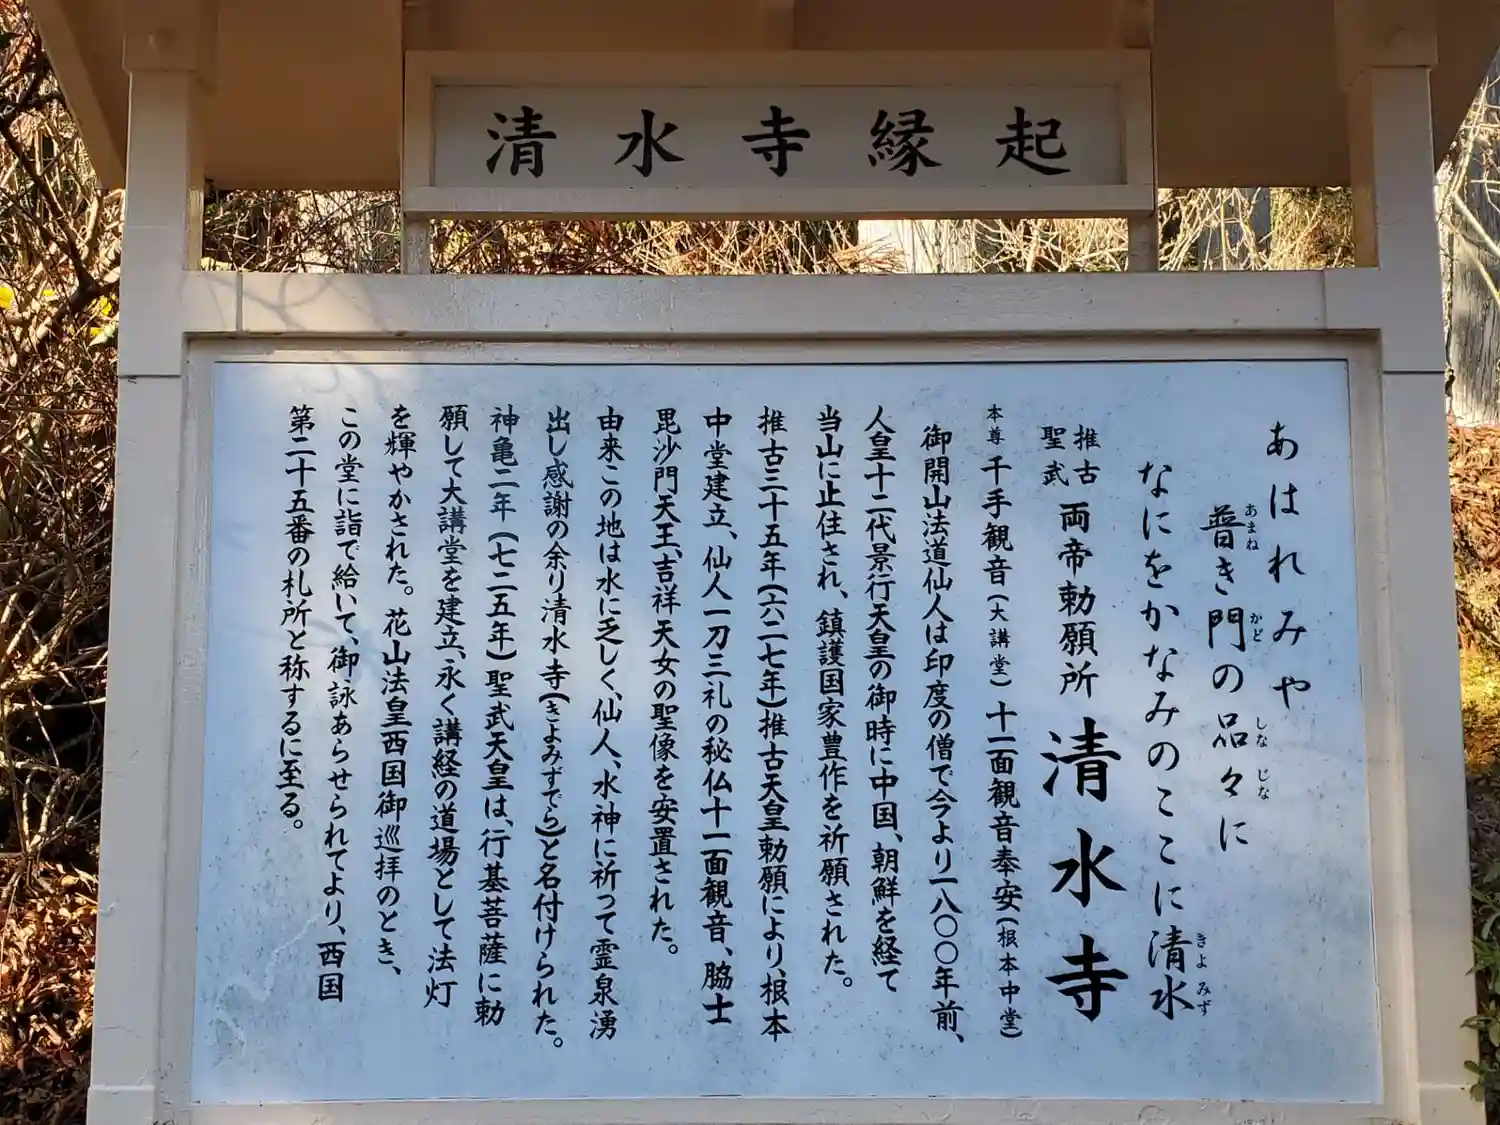 清水寺縁起
あはれみや
普き門の品々に
あまね かど しな じな
なにをかなみのここに清水
きよ みず
推古
聖武
両帝勅願所 清水寺
本尊 千手観音(大講堂)十一面観音奉安(根本中堂)
御開山法道仙人は印度の僧で今より一八〇〇年前、
人皇十二代景行天皇の御時に中国、朝鮮を経て
当山に止住され、鎮護国家豊作を祈願された。
推古三十五年(六二七年)推古天皇勅願により、根本
中堂建立、仙人一刀三礼の秘仏十一面観音、脇士
毘沙門天王、吉祥天女の聖像を安置された。
由来この地は水に乏しく、仙人、水神に祈って霊泉湧
出し感謝の余り清水寺(きよみずでら)と名付けられた。
神亀二年(七二五年)聖武天皇は、行基菩薩に勅
願して大講堂を建立、永く講経の道場として法灯
を輝やかされた。花山法皇西国御巡拝のとき、
この堂に詣で給いて、御詠あらせられてより、西国
第二十五番の札所と称するに至る。